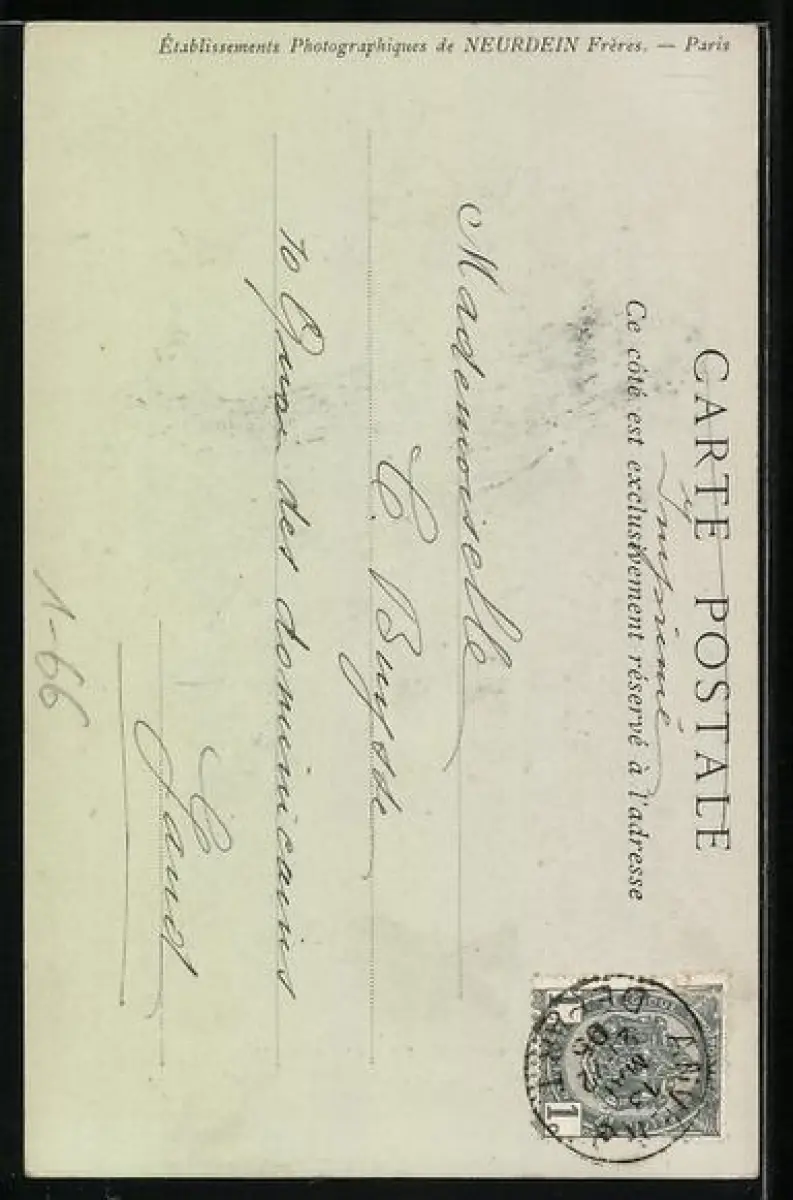 Établissements Photographiques de NEURDEIN Frères. — Paris
CARTE POSTALE
Imprimé
Ce côté est exclusivement réservé à l'adresse
Mademoiselle
C. Buysde
10 Quai des dominicains
Gand
1-66
1
1